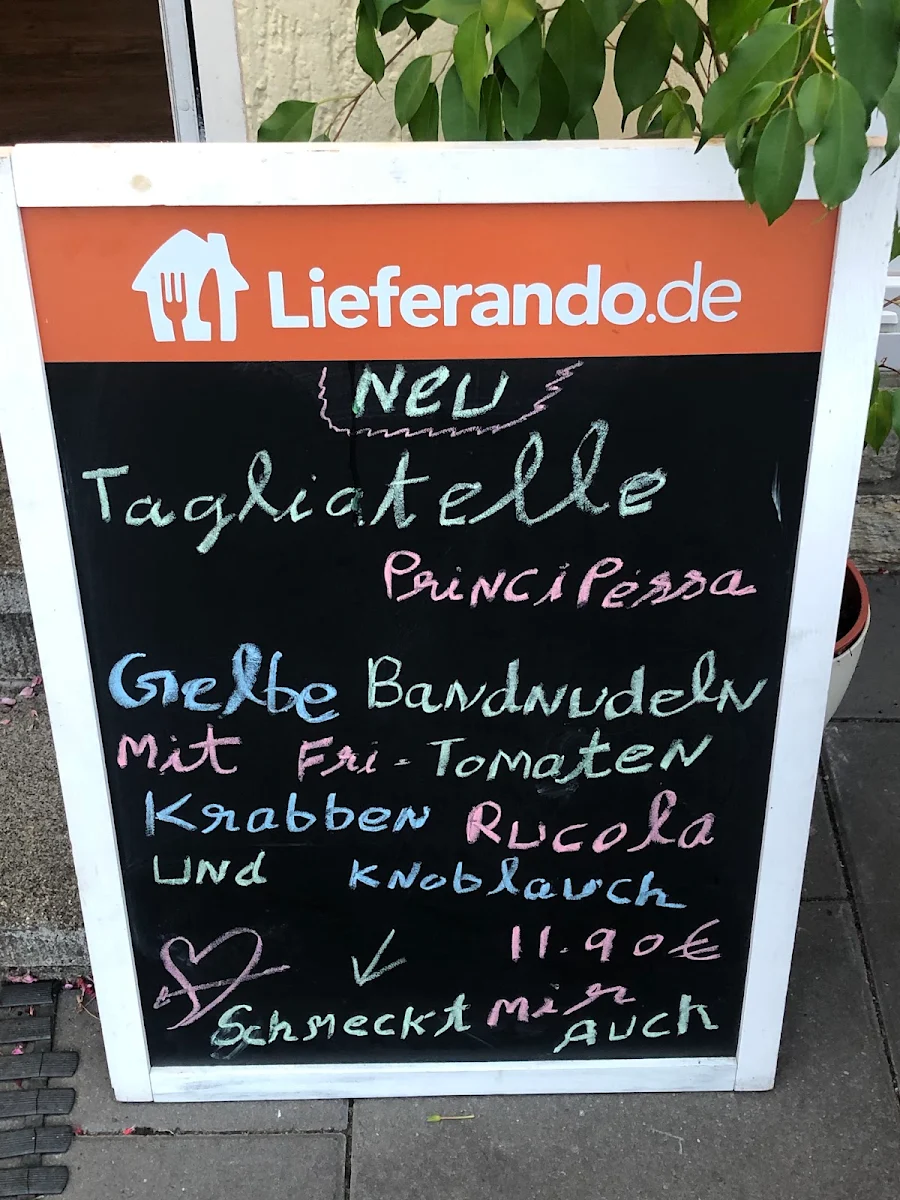 Lieferando.de
Neu
Tagliatelle
Principessa
Gelbe Bandnudeln
Mit Fri-Tomaten
Krabben Rucola
und Knoblauch
11.90€
Schmeckt mir
Auch